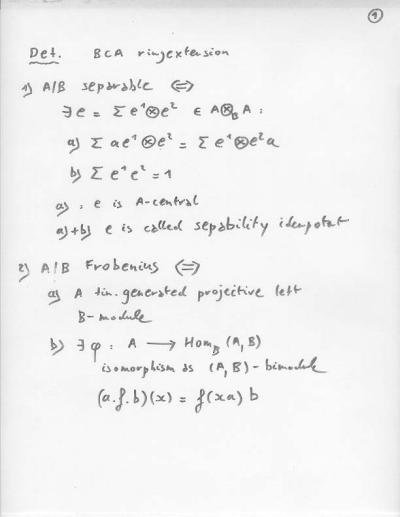 1
Def. B⊂A ringextension
1) A/B separable ⟺
∃ e = Σ e¹⊗e² ∈ A⊗_B A :
a) Σ ae¹⊗e² = Σ e¹⊗e²a
b) Σ e¹e² = 1
a) : e is A-central
a)+b) e is called sepability idempotent
2) A/B Frobenius ⟺
a) A fin. generated projective left
B-module
b) ∃ φ : A ⟶ Hom_B (A,B)
isomorphism as (A,B)-bimodule
(a.f.b)(x) = f(xa) b